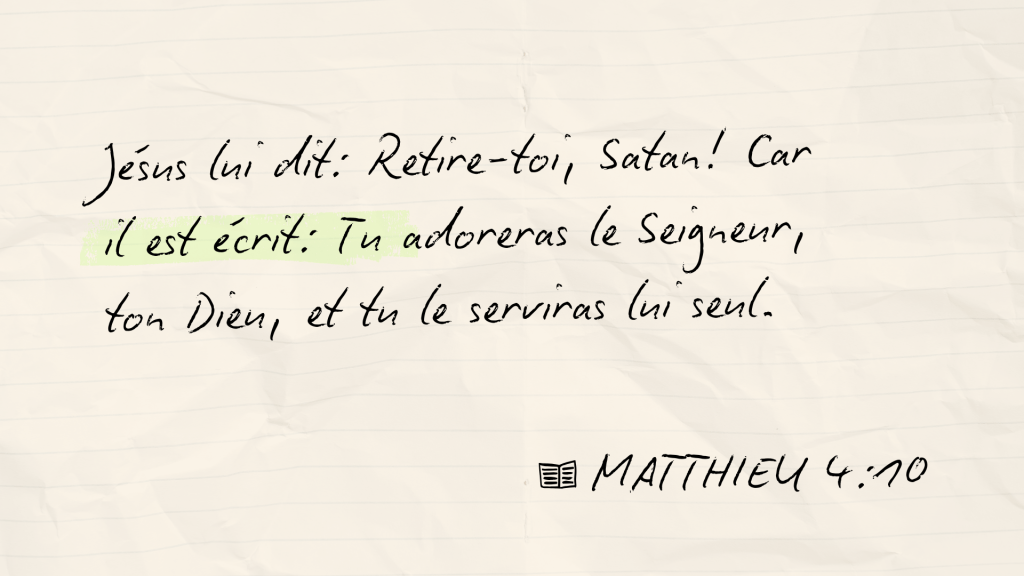 Jésus lui dit: Retire-toi, Satan! Car
il est écrit: Tu adoreras le Seigneur,
ton Dieu, et tu le serviras lui seul.
MATTHIEU 4:10